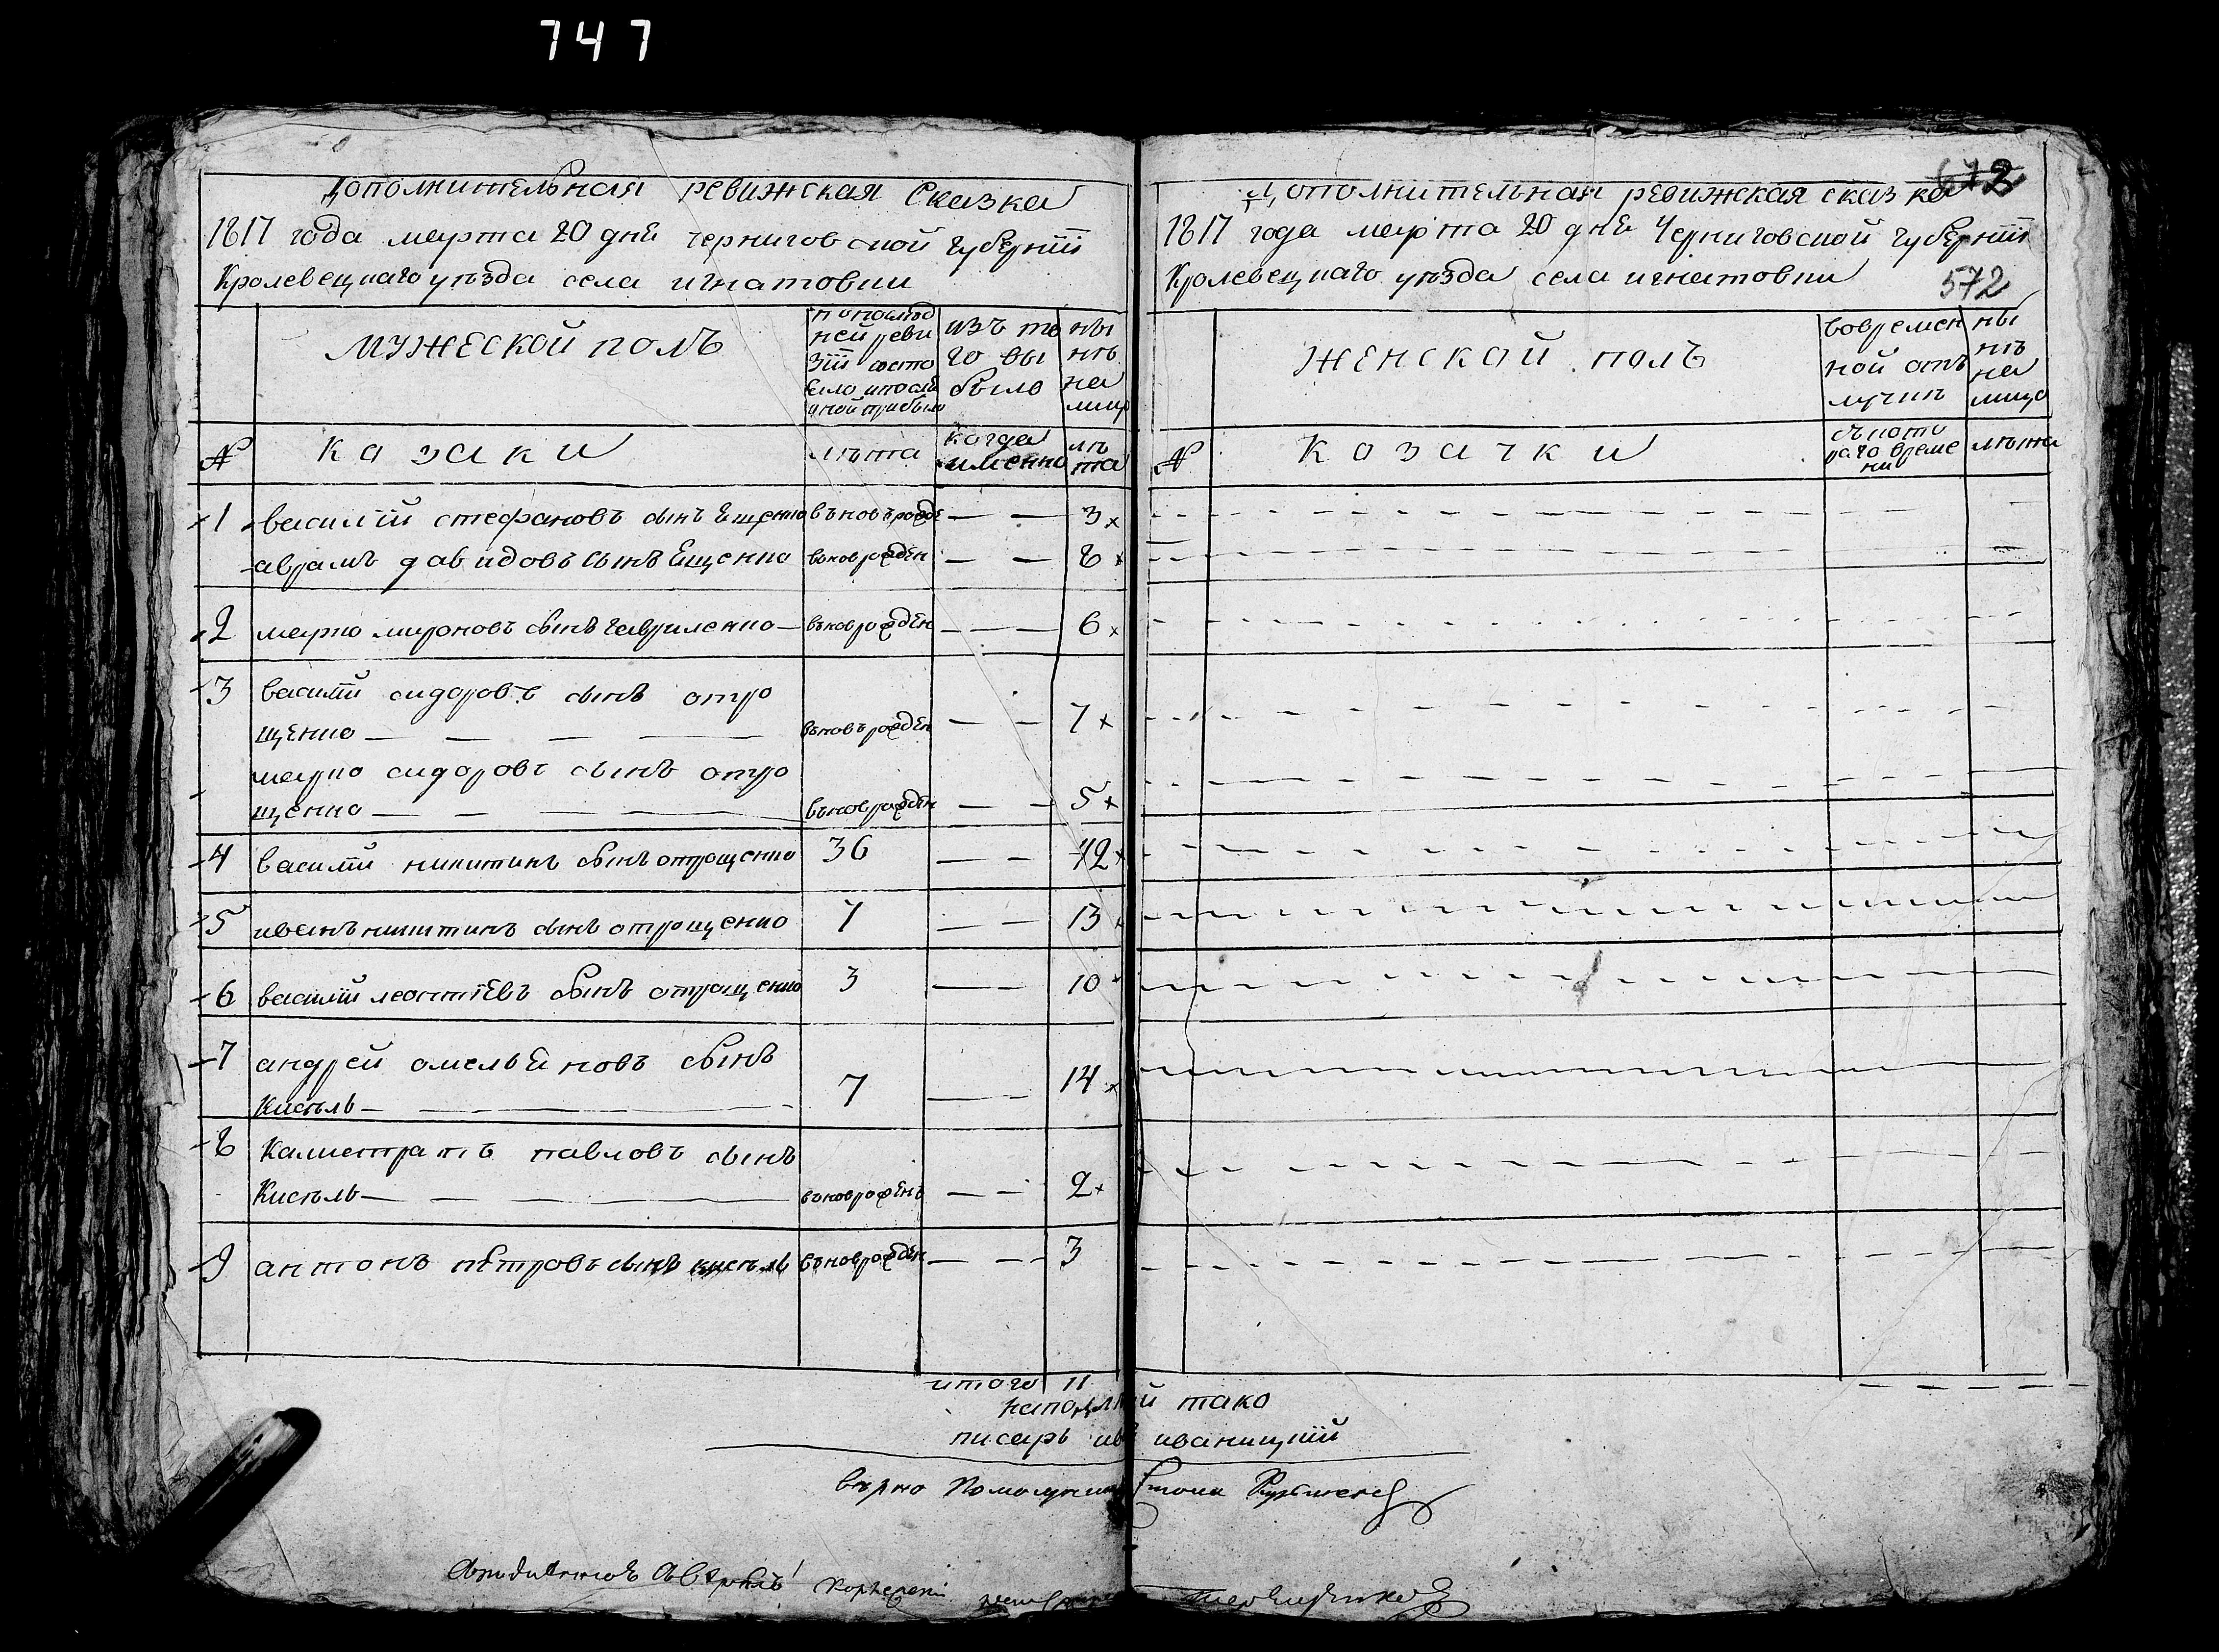 747
Дополнительная ревижская Сказка
1817 года марта 20 дня черниговской губернїи
Кролевецкаго уѣзда села игнатовки
мужеской полъ
по послѣд
ней реви
зїи состо
изъ то
го вы
было
ны
нѣ
на
лицо
№
козаки
лѣта
когда
имянно
лѣ
та
1 василїй стефановъ сынъ Ещенко въновь рожде — — 3
аврамъ давидовъ сынъ Ещенко вьноврожден — — 8
2 марко мироновъ сынъ гавриленко — вьноврожден — — 6
3 василїй сидоровъ сынъ отро
щенко — — — — въновърожден — — 7
марко сидоровъ сынъ отро
щенко — — — — вьноврожден — — 5
4 василїй никитинъ сынъ отрощенко 36 — — 42
5 иванъ никитинъ сынъ отрощенко 7 — — 13
6 василїй леонтїевъ сынъ отрощенко 3 — — 10
7 андрей омельяновъ сынъ
Кисѣль — — — — 7 — — 14
8 Калистратъ павловъ сынъ
Кисѣль — — — — вьноврожденъ — — 2
9 антонъ петровъ сынъ кисѣль вьноврожден — — 3
итого 11
672
Дополнительная ревижская сказка
1817 года марта 20 дня Черниговской губернїи
Кролевецкаго уѣзда села игнатовки
572
женской полъ
вовремен
ной отъ
лучкѣ
ны
нѣ
на
лицо
№
козачки
съ кото
раго време
ни
лѣта
тако
писарь иваницкїй
вѣрно